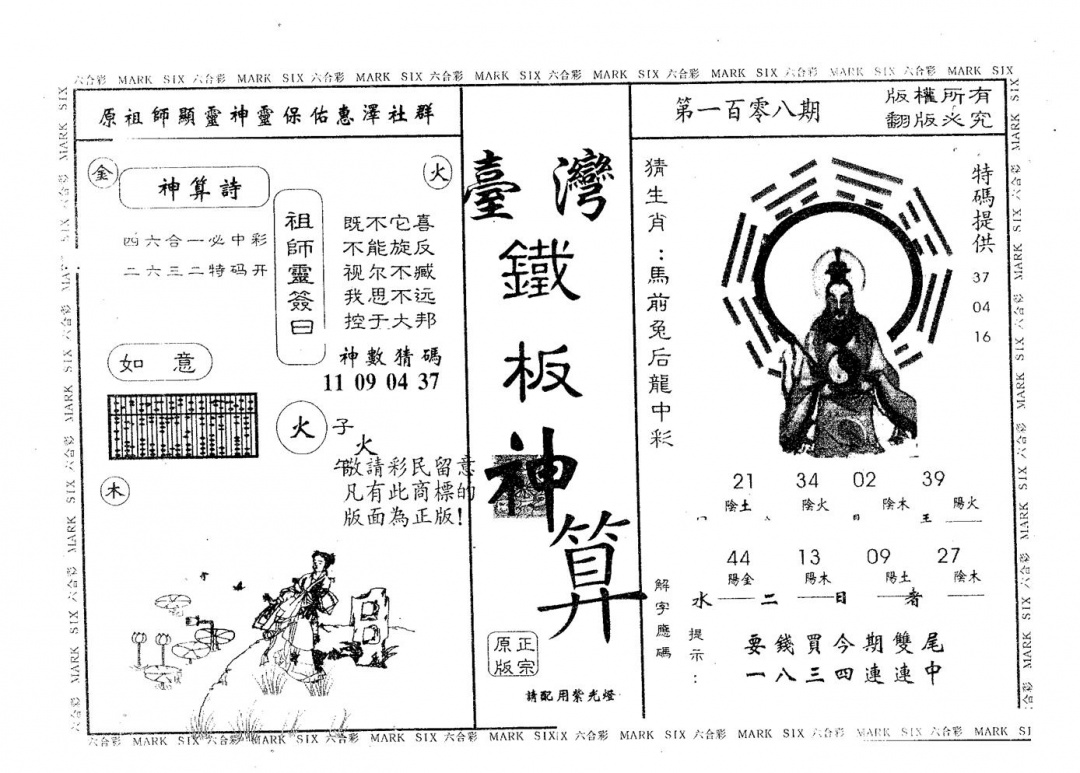 六合彩 MARK SIX 六合彩 MARK SIX 六合彩 MARK SIX 六合彩 MARK SIX 六合彩 MARK SIX 六合彩 MARK SIX 六合彩 MARK SIX 六合彩 MARK SIX
原祖師顯靈神靈保佑惠澤社群
金
火
神算詩
四六合一必中彩
二六三二特码开
祖師靈簽曰
既不它喜
不能旋反
视尔不臧
我思不远
控于大邦
神數猜碼
11 09 04 37
如意
火
子
火
午
敬請彩民留意
凡有此商標的
版面為正版!
木
臺灣
鐵
板
神
算
正宗
原版
請配用紫光燈
第一百零八期
版權所有
翻版必究
猜生肖:馬前兔后龍中彩
特碼提供
37
04
16
21 34 02 39
陰土 陰火 陰木 陽火
44 13 09 27
陽金 陽木 陽土 陰木
水 二 日 者
解字應碼
提示:
要錢買今期雙尾
一八三四連連中
六合彩 MARK SIX 六合彩 MARK SIX 六合彩 MARK SIX 六合彩 MARK SIX 六合彩 MARK SIX 六合彩 MARK SIX 六合彩 MARK SIX 六合彩 MARK SI